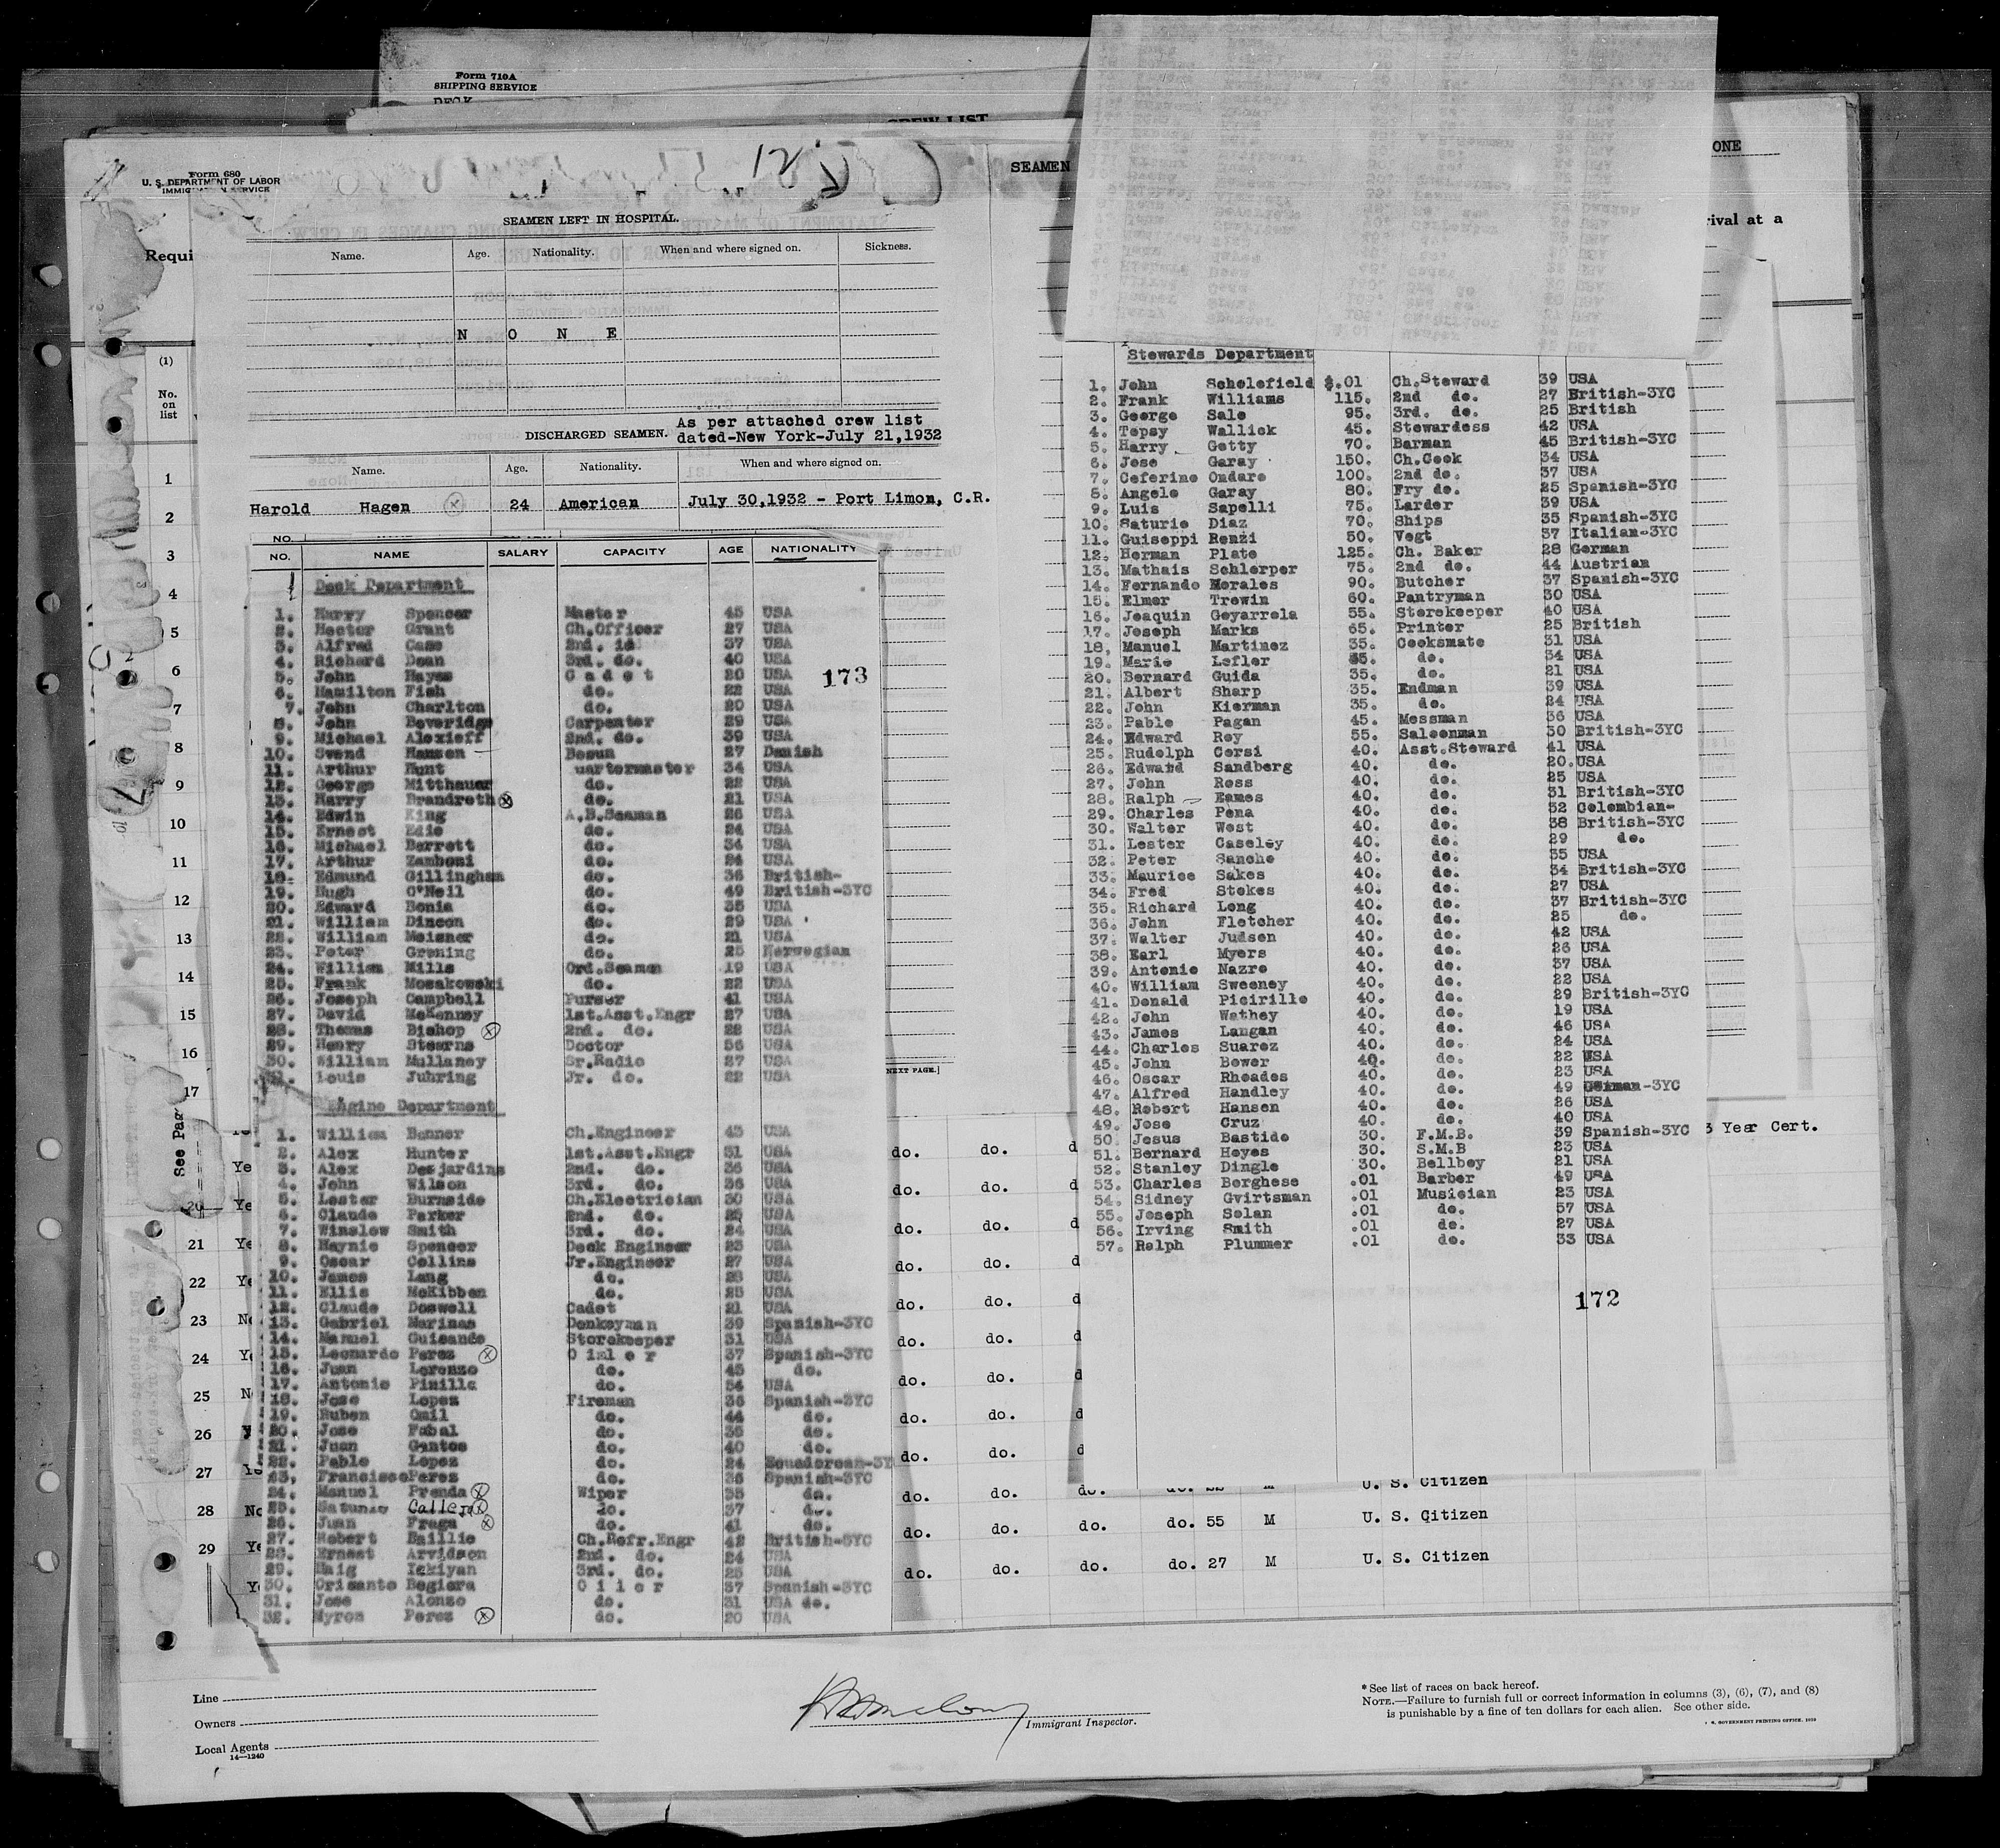 Form 710A
SHIPPING SERVICE
DECK
CREW LIST
Form 680
U. S. DEPARTMENT OF LABOR
SEAMEN
ONE
rival at a
Requi
SEAMEN LEFT IN HOSPITAL.
Name. Age. Nationality. When and where signed on. Sickness.
N O N E
DISCHARGED SEAMEN. As per attached crew list
dated-New York-July 21,1932
Name. Age. Nationality. When and where signed on.
Harold Hagen 24 American July 30,1932 - Port Limon, C.R.
NO. NAME SALARY CAPACITY AGE NATIONALITY
Deck Department
1. Harry Spencer Master 45 USA
2. Hector Grant Ch.Officer 27 USA
3. Alfred Case 2nd. 37 USA
4. Richard Dean 3rd. do. 40 USA
5. John Hayes Cadet 20 USA
6. Hamilton Fish do. 22 USA
7. John Charlton do. 20 USA
8. John Beveridge Carpenter 29 USA
9. Michael Alexieff 2nd. do. 39 USA
10. Svend Hansen Bosun 27 Danish
11. Arthur Hunt uartermaster 34 USA
12. George Mitthauer do. 22 USA
13. Harry Brandreth do. 21 USA
14. Edwin King A.B.Seaman 26 USA
15. Ernest Edie do. 24 USA
16. Michael Barrett do. 34 USA
17. Arthur Zamboni do. 24 USA
18. Edmund Gillingham do. 36 British-
19. Hugh O'Neil do. 49 British-3YC
20. Edward Bonia do. 35 USA
21. William Dineen do. 29 USA
22. William Meisner do. 21 USA
23. Peter Grening do. 25 Norwegian
24. William Mills Ord.Seaman 19 USA
25. Frank Mosakowski do. 22 USA
26. Joseph Campbell Purser 41 USA
27. David McKenney 1st.Asst.Engr 27 USA
28. Thomas Bishop 2nd. do. 22 USA
29. Henry Stearns Doctor 56 USA
30. William Mullaney Sr.Radio 27 USA
Louis Juhring Jr. do. 22 USA
173
Engine Department
1. William Banner Ch.Engineer 43 USA
2. Alex Hunter 1st.Asst.Engr 31 USA
3. Alex Desjardins 2nd. do. 36 USA
4. John Wilson 3rd. do. 36 USA
5. Lester Burnside Ch.Electrician 30 USA
6. Claude Parker 2nd. do. 25 USA
7. Winslow Smith 3rd. do. 24 USA
8. Haynie Spencer Deck Engineer 23 USA
9. Oscar Collins Jr.Engineer 27 USA
10. James Lang do. 28 USA
11. Ellis McKibben do. 25 USA
12. Claude Doswell Cadet 21 USA
13. Gabriel Marinas Donkeyman 39 Spanish-3YC
14. Manuel Guisande Storekeeper 31 USA
15. Leonardo Perez Oiler 37 Spanish-3YC
16. Juan Lorenzo do. 45 do.
17. Antonio Pinilla do. 54 USA
18. Jose Lopez Fireman 36 Spanish-3YC
19. Ruben Omil do. 44 do.
20. Jose Fabal do. 36 do.
21. Juan Gantes do. 40 do.
22. Pablo Lopez do. 24 Ecuadorean-3Y
23. Francisco Perez do. 36 Spanish-3YC
24. Manuel Prenda Wiper 35 do.
25. Calleja do. 37 do.
26. Juan Fraga do. 41 do.
27. Robert Baillie Ch.Refr.Engr 42 British-3YC
28. Ernest Arvidson 2nd. do. 24 USA
29. Haig Ickiyan 3rd. do. 25 USA
30. Orisanto Begiera Oiler 37 Spanish-3YC
31. Jose Alonzo do. 31 USA do.
32. Myron Perez do. 20 USA
Stewards Department
1. John Scholefield $.01 Ch.Steward 39 USA
2. Frank Williams 115. 2nd do. 27 British-3YC
3. George Sale 95. 3rd. do. 25 British
4. Topsy Wallick 45. Stewardess 42 USA
5. Harry Getty 70. Barman 45 British-3YC
6. Jose Garay 150. Ch.Cook 34 USA
7. Ceferino Ondaro 100. 2nd do. 37 USA
8. Angelo Garay 80. Fry do. 25 Spanish-3YC
9. Luis Sapelli 75. Larder 39 USA
10. Saturio Diaz 70. Ships 35 Spanish-3YC
11. Guiseppi Renzi 50. Vegt 37 Italian-3YC
12. Herman Plate 125. Ch. Baker 28 German
13. Mathais Schlerper 75. 2nd do. 44 Austrian
14. Fernando Morales 90. Butcher 37 Spanish-3YC
15. Elmer Trewin 60. Pantryman 30 USA
16. Joaquin Goyarrola 55. Storekeeper 40 USA
17. Joseph Marks 65. Printer 25 British
18. Manuel Martinez 35. Cooksmate 31 USA
19. Marie Lefler 35. do. 34 USA
20. Bernard Guida 35. do. 21 USA
21. Albert Sharp 35. Endman 39 USA
22. John Kierman 35. do. 24 USA
23. Pablo Pagan 45. Messman 36 USA
24. Edward Roy 55. Saloonman 30 British-3YC
25. Rudolph Corsi 40. Asst.Steward 41 USA
26. Edward Sandberg 40. do. 20.USA
27. John Ross 40. do. 25 USA
28. Ralph Eames 40. do. 31 British-3YC
29. Charles Pena 40. do. 52 Colombian-
30. Walter West 40. do. 38 British-3YC
31. Lester Caseley 40. do. 29 do.
32. Peter Sanche 40. do. 35 USA
33. Maurice Sakes 40. do. 34 British-3YC
34. Fred Stokes 40. do. 27 USA
35. Richard Long 40. do. 37 British-3YC
36. John Fletcher 40. do. 25 do.
37. Walter Judsen 40. do. 42 USA
38. Earl Myers 40. do. 26 USA
39. Antonio Nazro 40. do. 37 USA
40. William Sweeney 40. do. 22 USA
41. Donald Picirillo 40. do. 29 British-3YC
42. John Wathey 40. do. 19 USA
43. James Langan 40. do. 46 USA
44. Charles Suarez 40. do. 24 USA
45. John Bower 40. do. 22 USA
46. Oscar Rhoades 40. do. 23 USA
47. Alfred Handley 40. do. 49 German-3YC
48. Robert Hansen 40. do. 26 USA
49. Jose Cruz 40. do. 40 USA
50. Jesus Bastido 30. F.M.B. 39 Spanish-3YC
51. Bernard Hoyes 30. S.M.B 23 USA
52. Stanley Dingle 30. Bellboy 21 USA
53. Charles Borghese .01 Barber 49 USA
54. Sidney Gvirtsman .01 Musician 23 USA
55. Joseph Solan .01 do. 57 USA
56. Irving Smith .01 do. 27 USA
57. Ralph Plummer .01 do. 33 USA
172
(1)
No.
on
list
1
2
3
4
5
6
7
8
9
10
11
12
13
14
15
16
17
See Pag
20 Ye
21 Ye
22 Ye
23 No
24 Ye
25 N
26 Y
27 Ye
28 No
29 Ye
NEXT PAGE.]
3 Year Cert.
do. do. d
do. do. d
do. do. d
do. do. d
do. do. d
do. do. d
do. do. d
do. do. d
do. do. d
do. do. do. U. S. Citizen
do. do. do. do. 55 M U. S. Citizen
do. do. do. do. 27 M U. S. Citizen
Line
Owners
Local Agents
14—1240
Immigrant Inspector.
* See list of races on back hereof.
NOTE.—Failure to furnish full or correct information in columns (3), (6), (7), and (8)
is punishable by a fine of ten dollars for each alien. See other side.